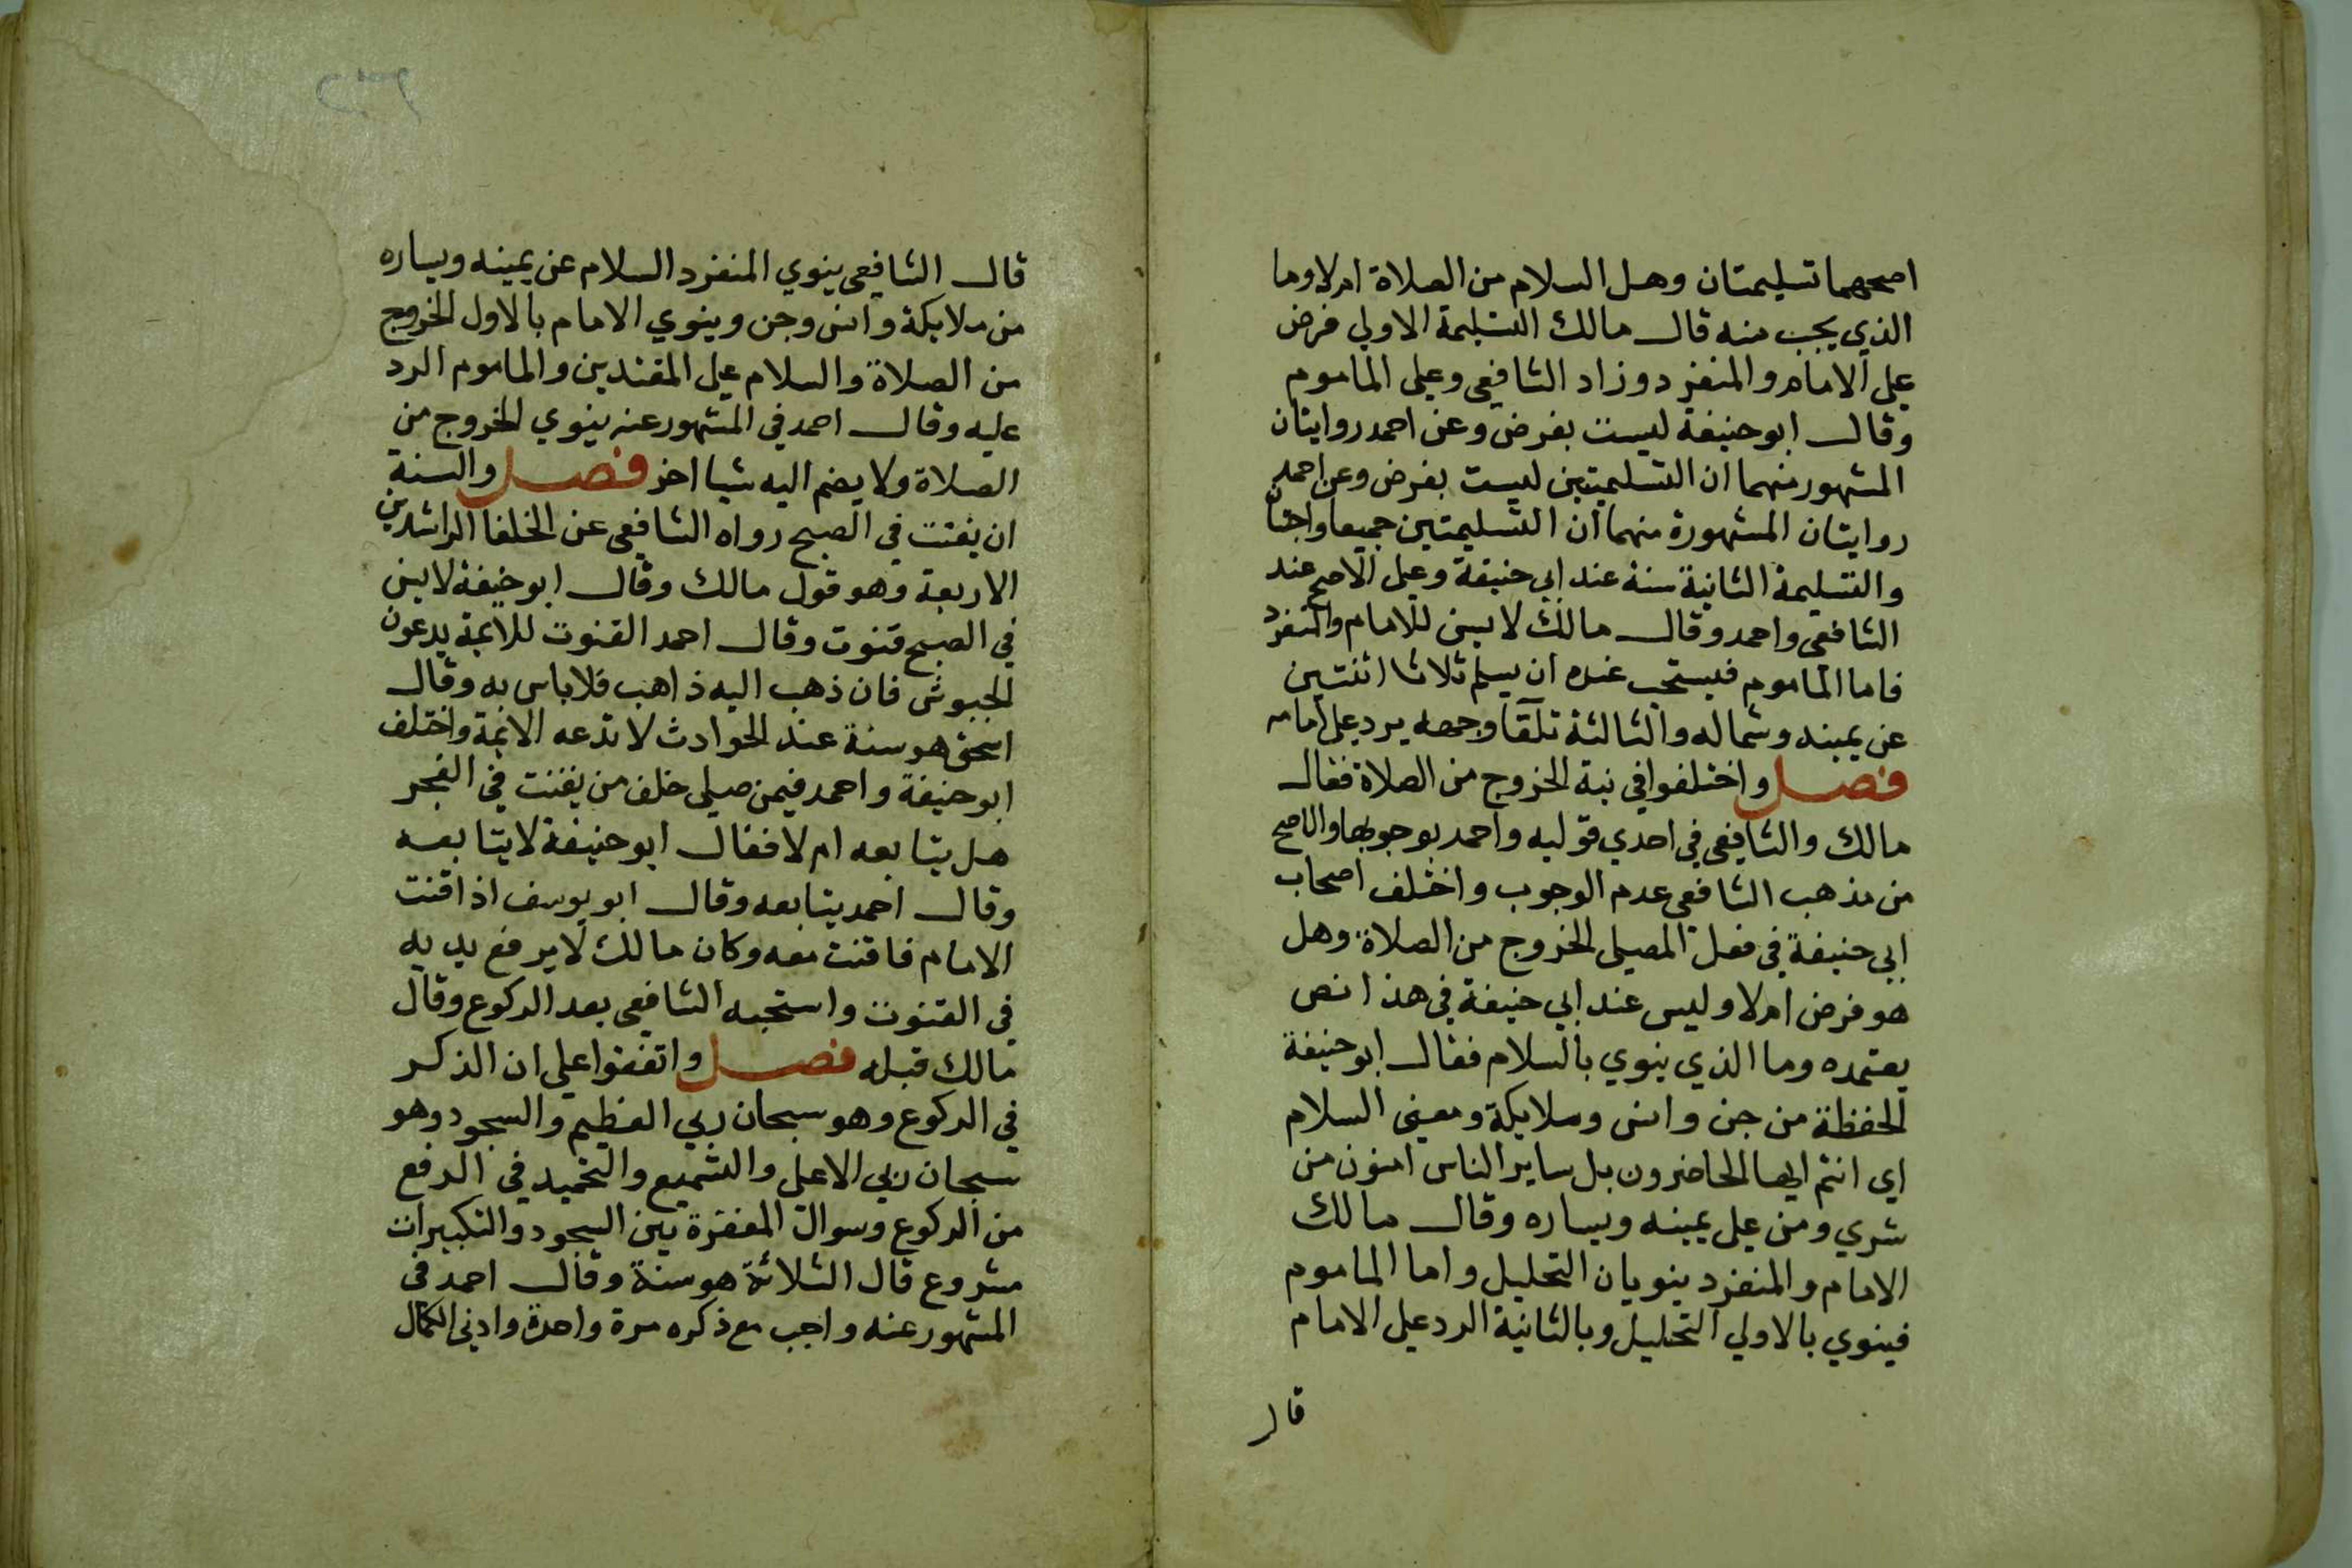 اصحهما تسليمتان وهل السلام من الصلاة ام لا وما
الذي يجب منه قال مالك التسليمة الاولي فرض
علي الامام والمنفرد وزاد الشافعي وعلي الماموم
وقال ابو حنيفة ليست بفرض وعن احمد روايتان
المشهور منهما ان التسليمتين ليست بفرض وعن احمد
روايتان المشهورة منهما ان التسليمتين جميعا واجبتان
والتسليمة الثانية سنة عند ابي حنيفة وعلي الاصح عند
الشافعي واحمد وقال مالك لا يسن للامام والمنفرد
فاما الماموم فيستحب عنده ان يسلم ثلاثا اثنتين
عن يمينه وشماله والثالثة تلقا وجهه يرد علي امامه
فصل واختلفوا في نية الخروج من الصلاة فقال
مالك والشافعي في احدي قوليه واحمد بوجوبها والاصح
من مذهب الشافعي عدم الوجوب واختلف اصحاب
ابي حنيفة في فعل المصلي الخروج من الصلاة وهل
هو فرض ام لا وليس عند ابي حنيفة في هذا نص
يعتمده وما الذي ينوي بالسلام فقال ابو حنيفة
الحفظة من جن وانس وملايكة ومعني السلام
اي انتم ايها الحاضرون بل ساير الناس امنون من
شري ومن علي يمينه ويساره وقال مالك
الامام والمنفرد ينويان التحليل واما الماموم
فينوي بالاولي التحليل وبالثانية الرد علي الامام
قال
قال الشافعي ينوي المنفرد السلام عن يمينه ويساره
من ملايكة وانس وجن وينوي الامام بالاول الخروج
من الصلاة والسلام علي المقتدين والماموم الرد
عليه وقال احمد في المشهور عنه ينوي الخروج من
الصلاة ولا يضم اليه شيا اخر فصل والسنة
ان يقنت في الصبح رواه الشافعي عن الخلفا الراشدين
الاربعة وهو قول مالك وقال ابو حنيفة لا يسن
في الصبح قنوت وقال احمد القنوت للايمة يدعون
للجيوش فان ذهب اليه ذاهب فلا باس به وقال
اسحق هو سنة عند الحوادث لا تدعه الائمة واختلف
ابو حنيفة واحمد فيمن صلي خلف من يقنت في الفجر
هل يتابعه ام لا فقال ابو حنيفة لا يتابعه
وقال احمد يتابعه وقال ابو يوسف اذا قنت
الامام فاقنت معه وكان مالك لا يرفع يديه
في القنوت واستحبه الشافعي بعد الركوع وقال
مالك قبله فصل واتفقوا علي ان الذكر
في الركوع وهو سبحان ربي العظيم والسجود وهو
سبحان ربي الاعلي والتسميع والتحميد في الرفع
من الركوع وسوال المغفرة بين السجود والتكبيرات
مشروع قال الثلاثة هو سنة وقال احمد في
المشهور عنه واجب مع ذكره مرة واحدة وادني الكمال